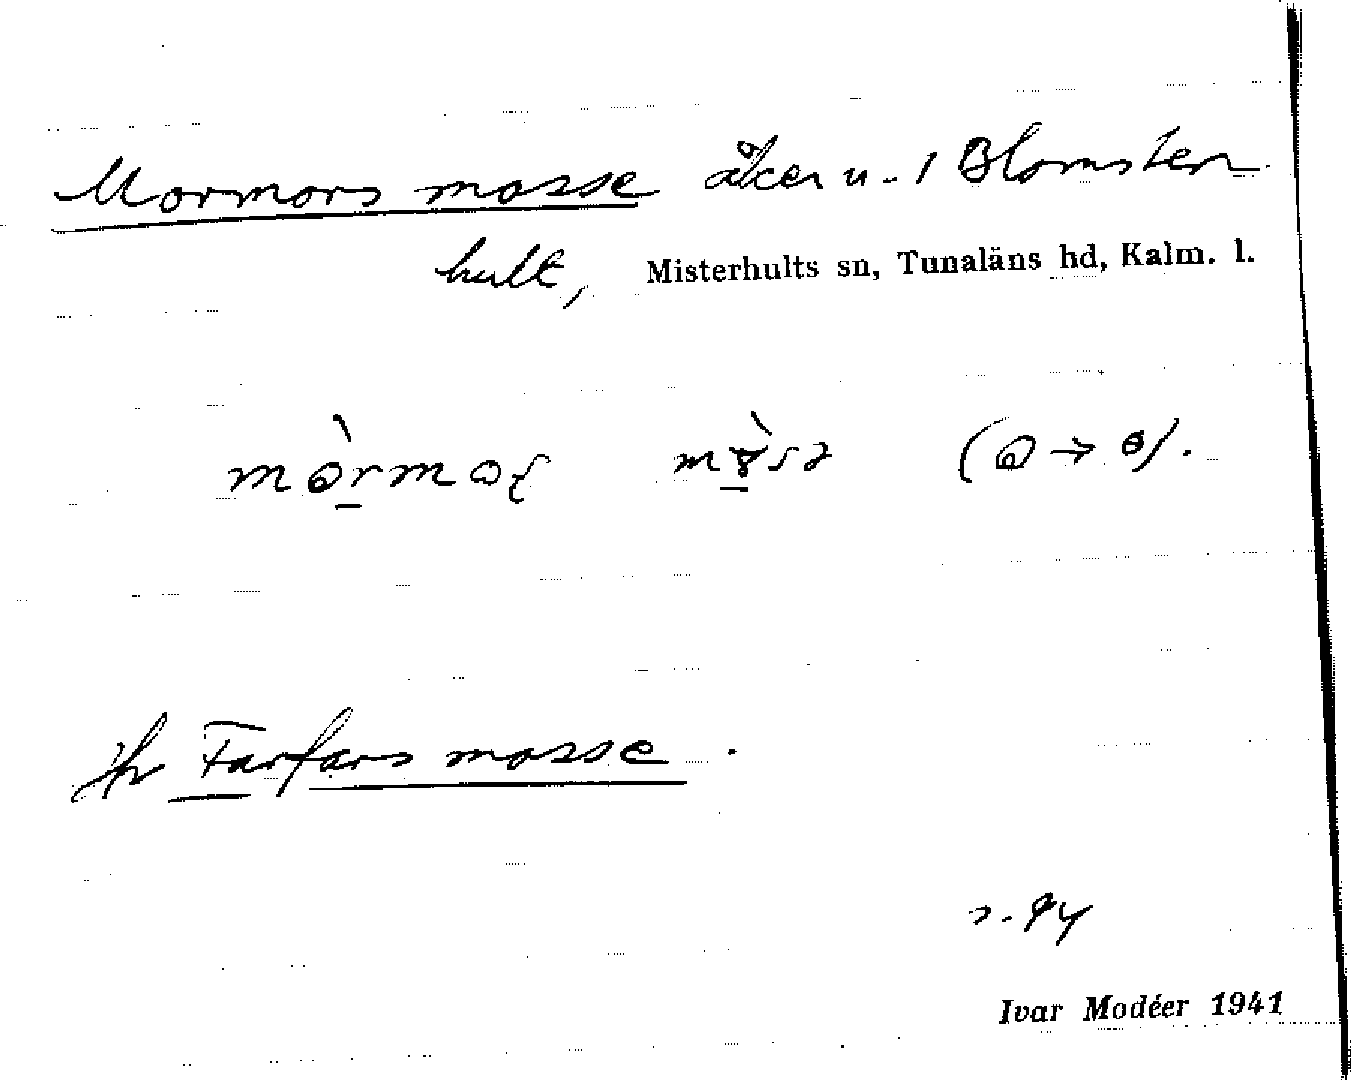 Mormors mosse åker u. 1 Blomster
hult, Misterhults sn, Tunaläns hd, Kalm. l.
Jfr Farfars mosse.
s. 94
Ivar Modéer 1941